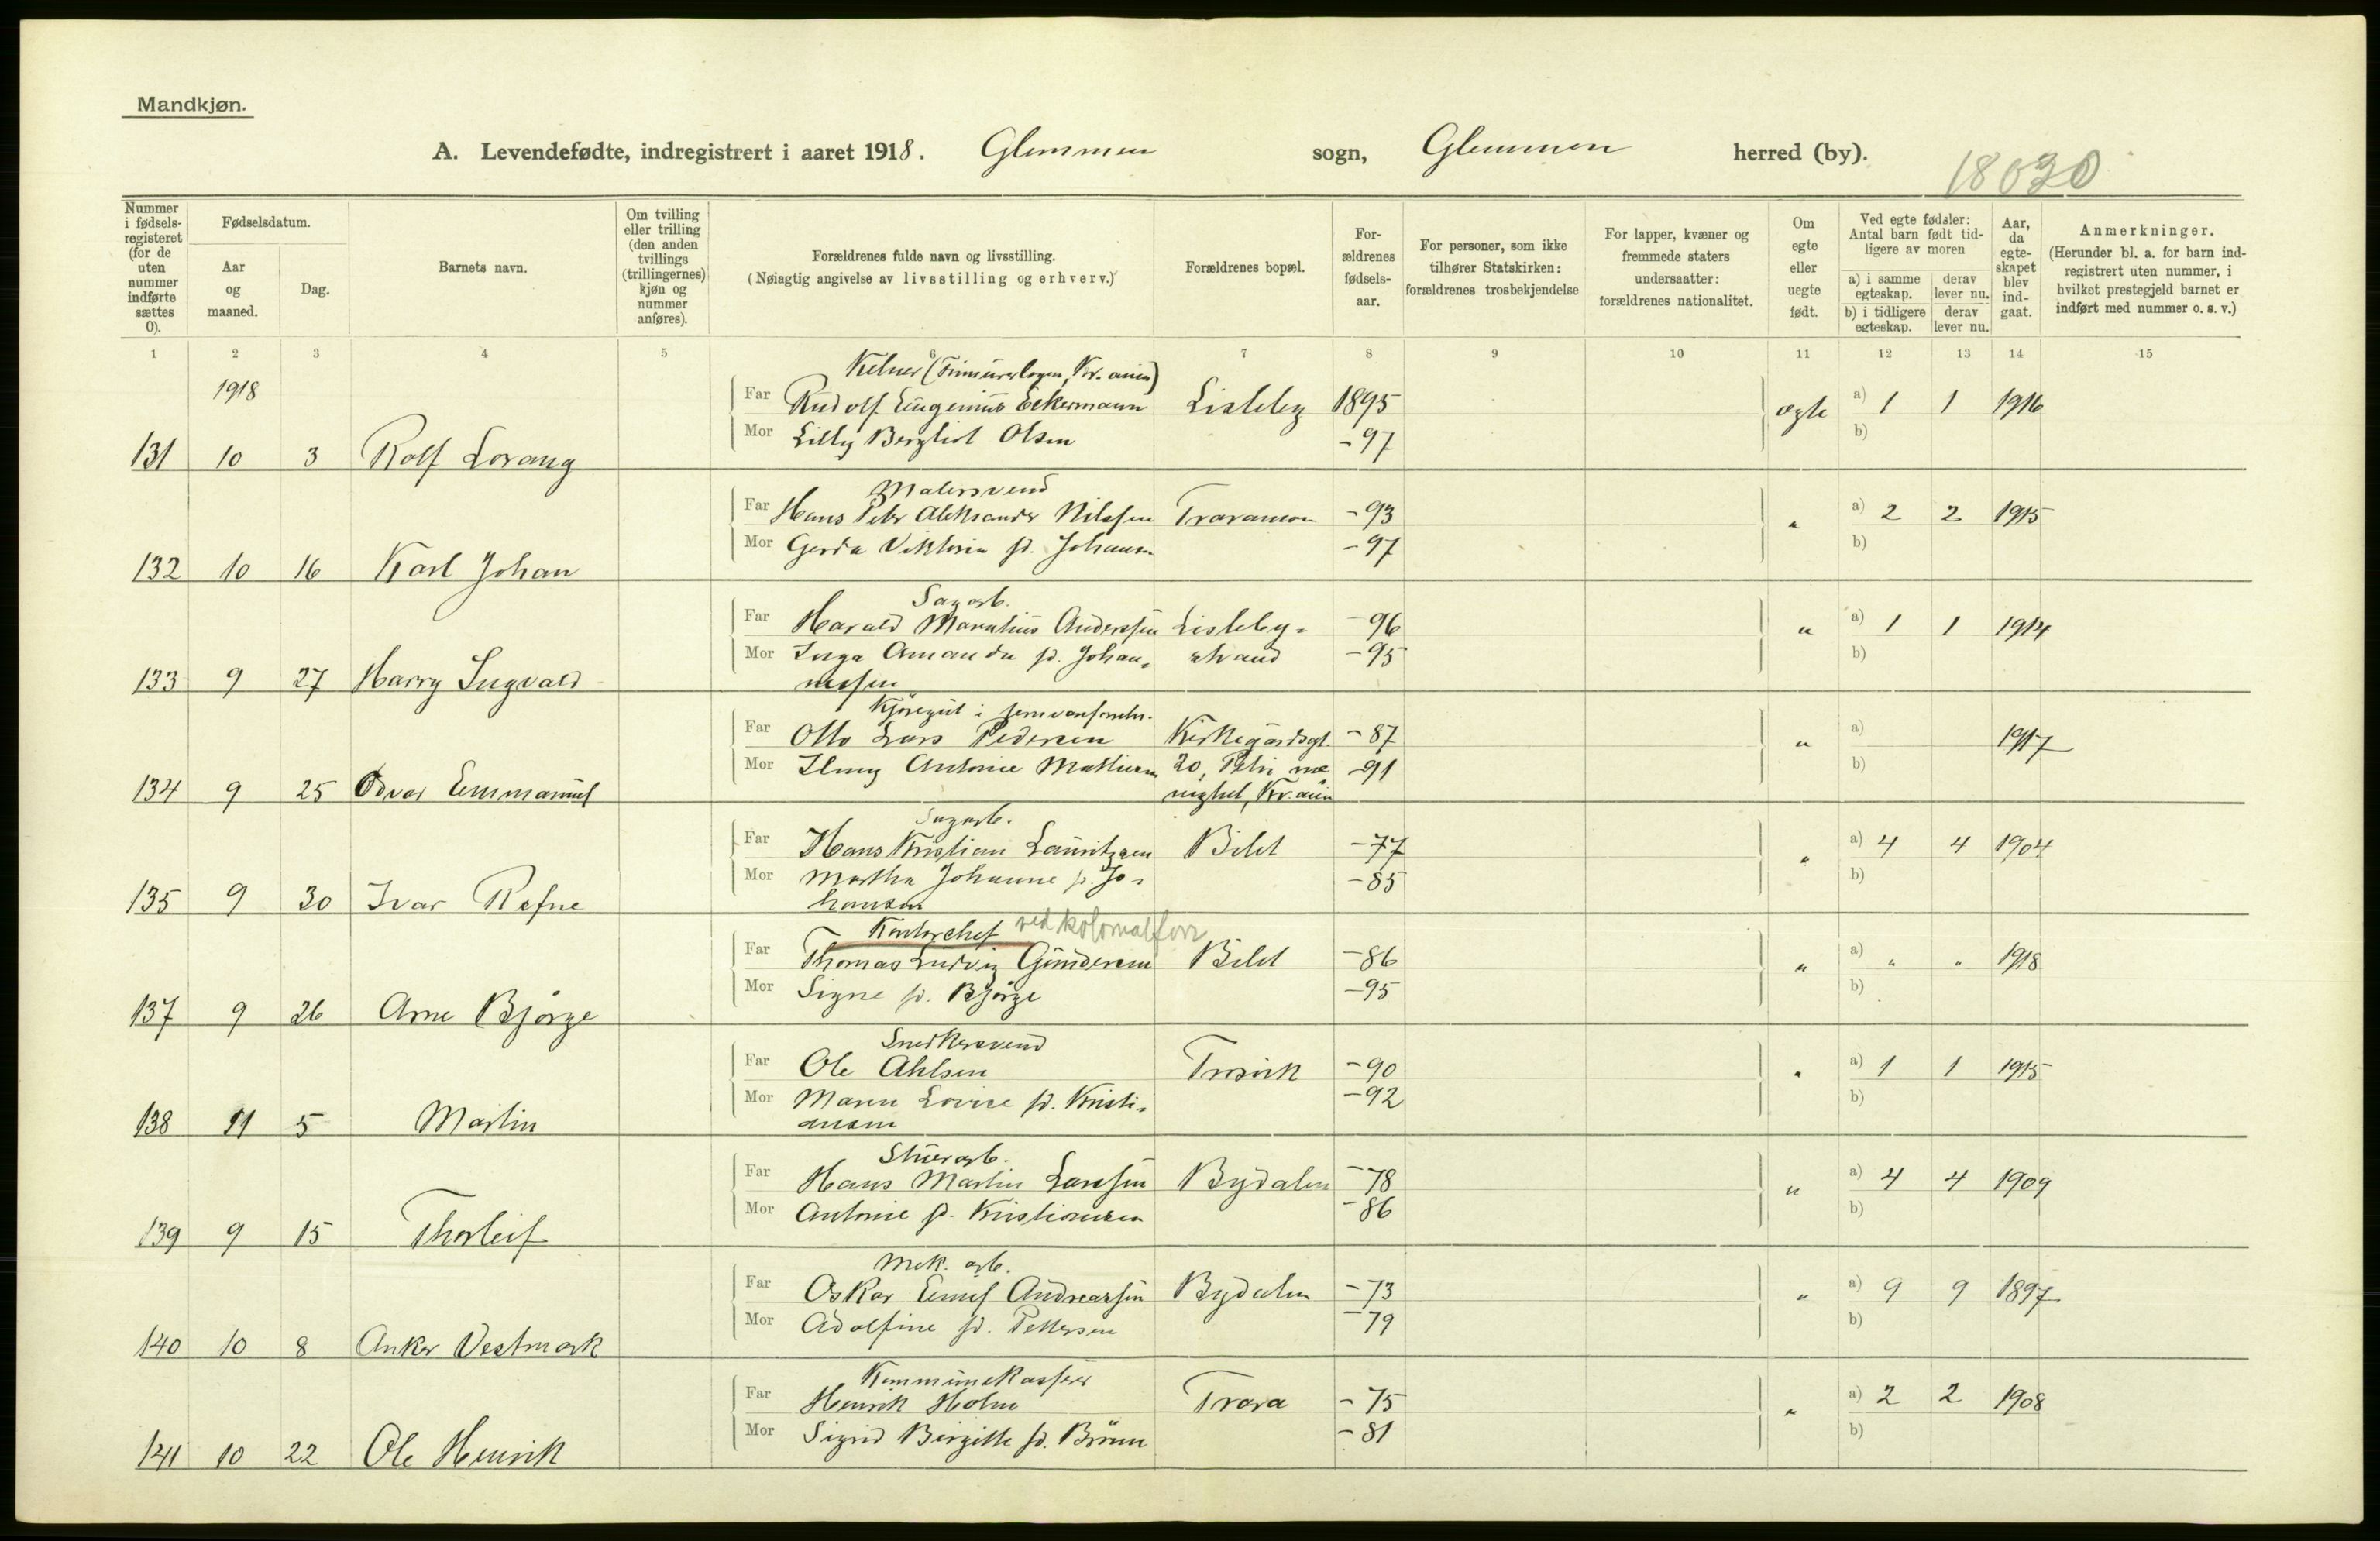 Mandkjøn.
A. Levendefødte, indregistrert i aaret 1918. Glemmen sogn, Glemmen herred (by).
18030
Nummer i fødsels-registeret (for de uten nummer indførte sættes 0).
Fødselsdatum.
Aar og maaned.
Dag.
Barnets navn.
Om tvilling eller trilling (den anden tvillings (trillingernes) kjøn og nummer anføres).
Forældrenes fulde navn og livsstilling.
(Nøiagtig angivelse av livsstilling og erhverv.)
Forældrenes bopæl.
For-ældrenes fødsels-aar.
For personer, som ikke tilhører Statskirken: forældrenes trosbekjendelse
For lapper, kvæner og fremmede staters undersaatter: forældrenes nationalitet.
Om egte eller uegte født.
Ved egte fødsler: Antal barn født tid-ligere av moren
a) i samme egteskap. derav lever nu.
b) i tidligere egteskap. derav lever nu.
Aar, da egte-skapet blev ind-gaat.
Anmerkninger.
(Herunder bl. a. for barn ind-registrert uten nummer, i hvilket prestegjeld barnet er indført med nummer o. s. v.)
1 2 3 4 5 6 7 8 9 10 11 12 13 14 15
1918
Kelner (Frimurerlogen, Kr.ania)
Far Rudolf Eugenius Eckermann Lisleby 1895 egte a) 1 1 1916
Mor Lilly Bergliot Olsen -97 b)
131 10 3 Rolf Lorang
Malersvend
Far Hans Peter Aleksander Nilssen Traramoen -93 " a) 2 2 1915
Mor Gerda Viktoria f. Johansen -97 b)
132 10 16 Karl Johan
Sagarb.
Far Harald Marelius Anderssen Lisleby- -96 " a) 1 1 1914
Mor Inga Amanda f. Johan- strand -95 b)
133 9 27 Harry Ingvald nessen
Kjöregut i jernvareforretn.
Far Otto Lars Pedersen Kirkegårdsgt. -87 " a) 1917
Mor Jenny Antonie Mathisen 20, Petri me -91 b)
134 9 25 Odvar Emmanuel nighet, Kr.ania
Sagarb.
Far Hans Kristian Lauritzsen Bilet -77 " a) 4 4 1904
Mor Martha Johanne f. Jo- -85 b)
135 9 30 Ivar Refne hansen
Kontorchef ved kolonialforr
Far Thomas Ludvig Gundersen Bilet -86 " a) " " 1918
Mor Signe f. Bjørge -95 b)
137 9 26 Arne Bjørge
Snedkersvend
Far Ole Ahlsen Trosvik -90 " a) 1 1 1915
Mor Maren Lovise f. Kristi- -92 b)
138 11 5 Martin ansen
Stuerarb.
Far Hans Martin Larssen Bydalen -78 " a) 4 4 1909
Mor Antonie f. Kristiansen -86 b)
139 9 15 Thorleif
Mek. arb.
Far Oskar Emil Andreassen Bydalen -73 " a) 9 9 1897
Mor Adolfine f. Pettersen -79 b)
140 10 8 Anker Vestmark
Kommunekasserer
Far Henrik Holm Trara -75 " a) 2 2 1908
Mor Sigrid Birgitte f. Bruun -81 b)
141 10 22 Ole Henrik